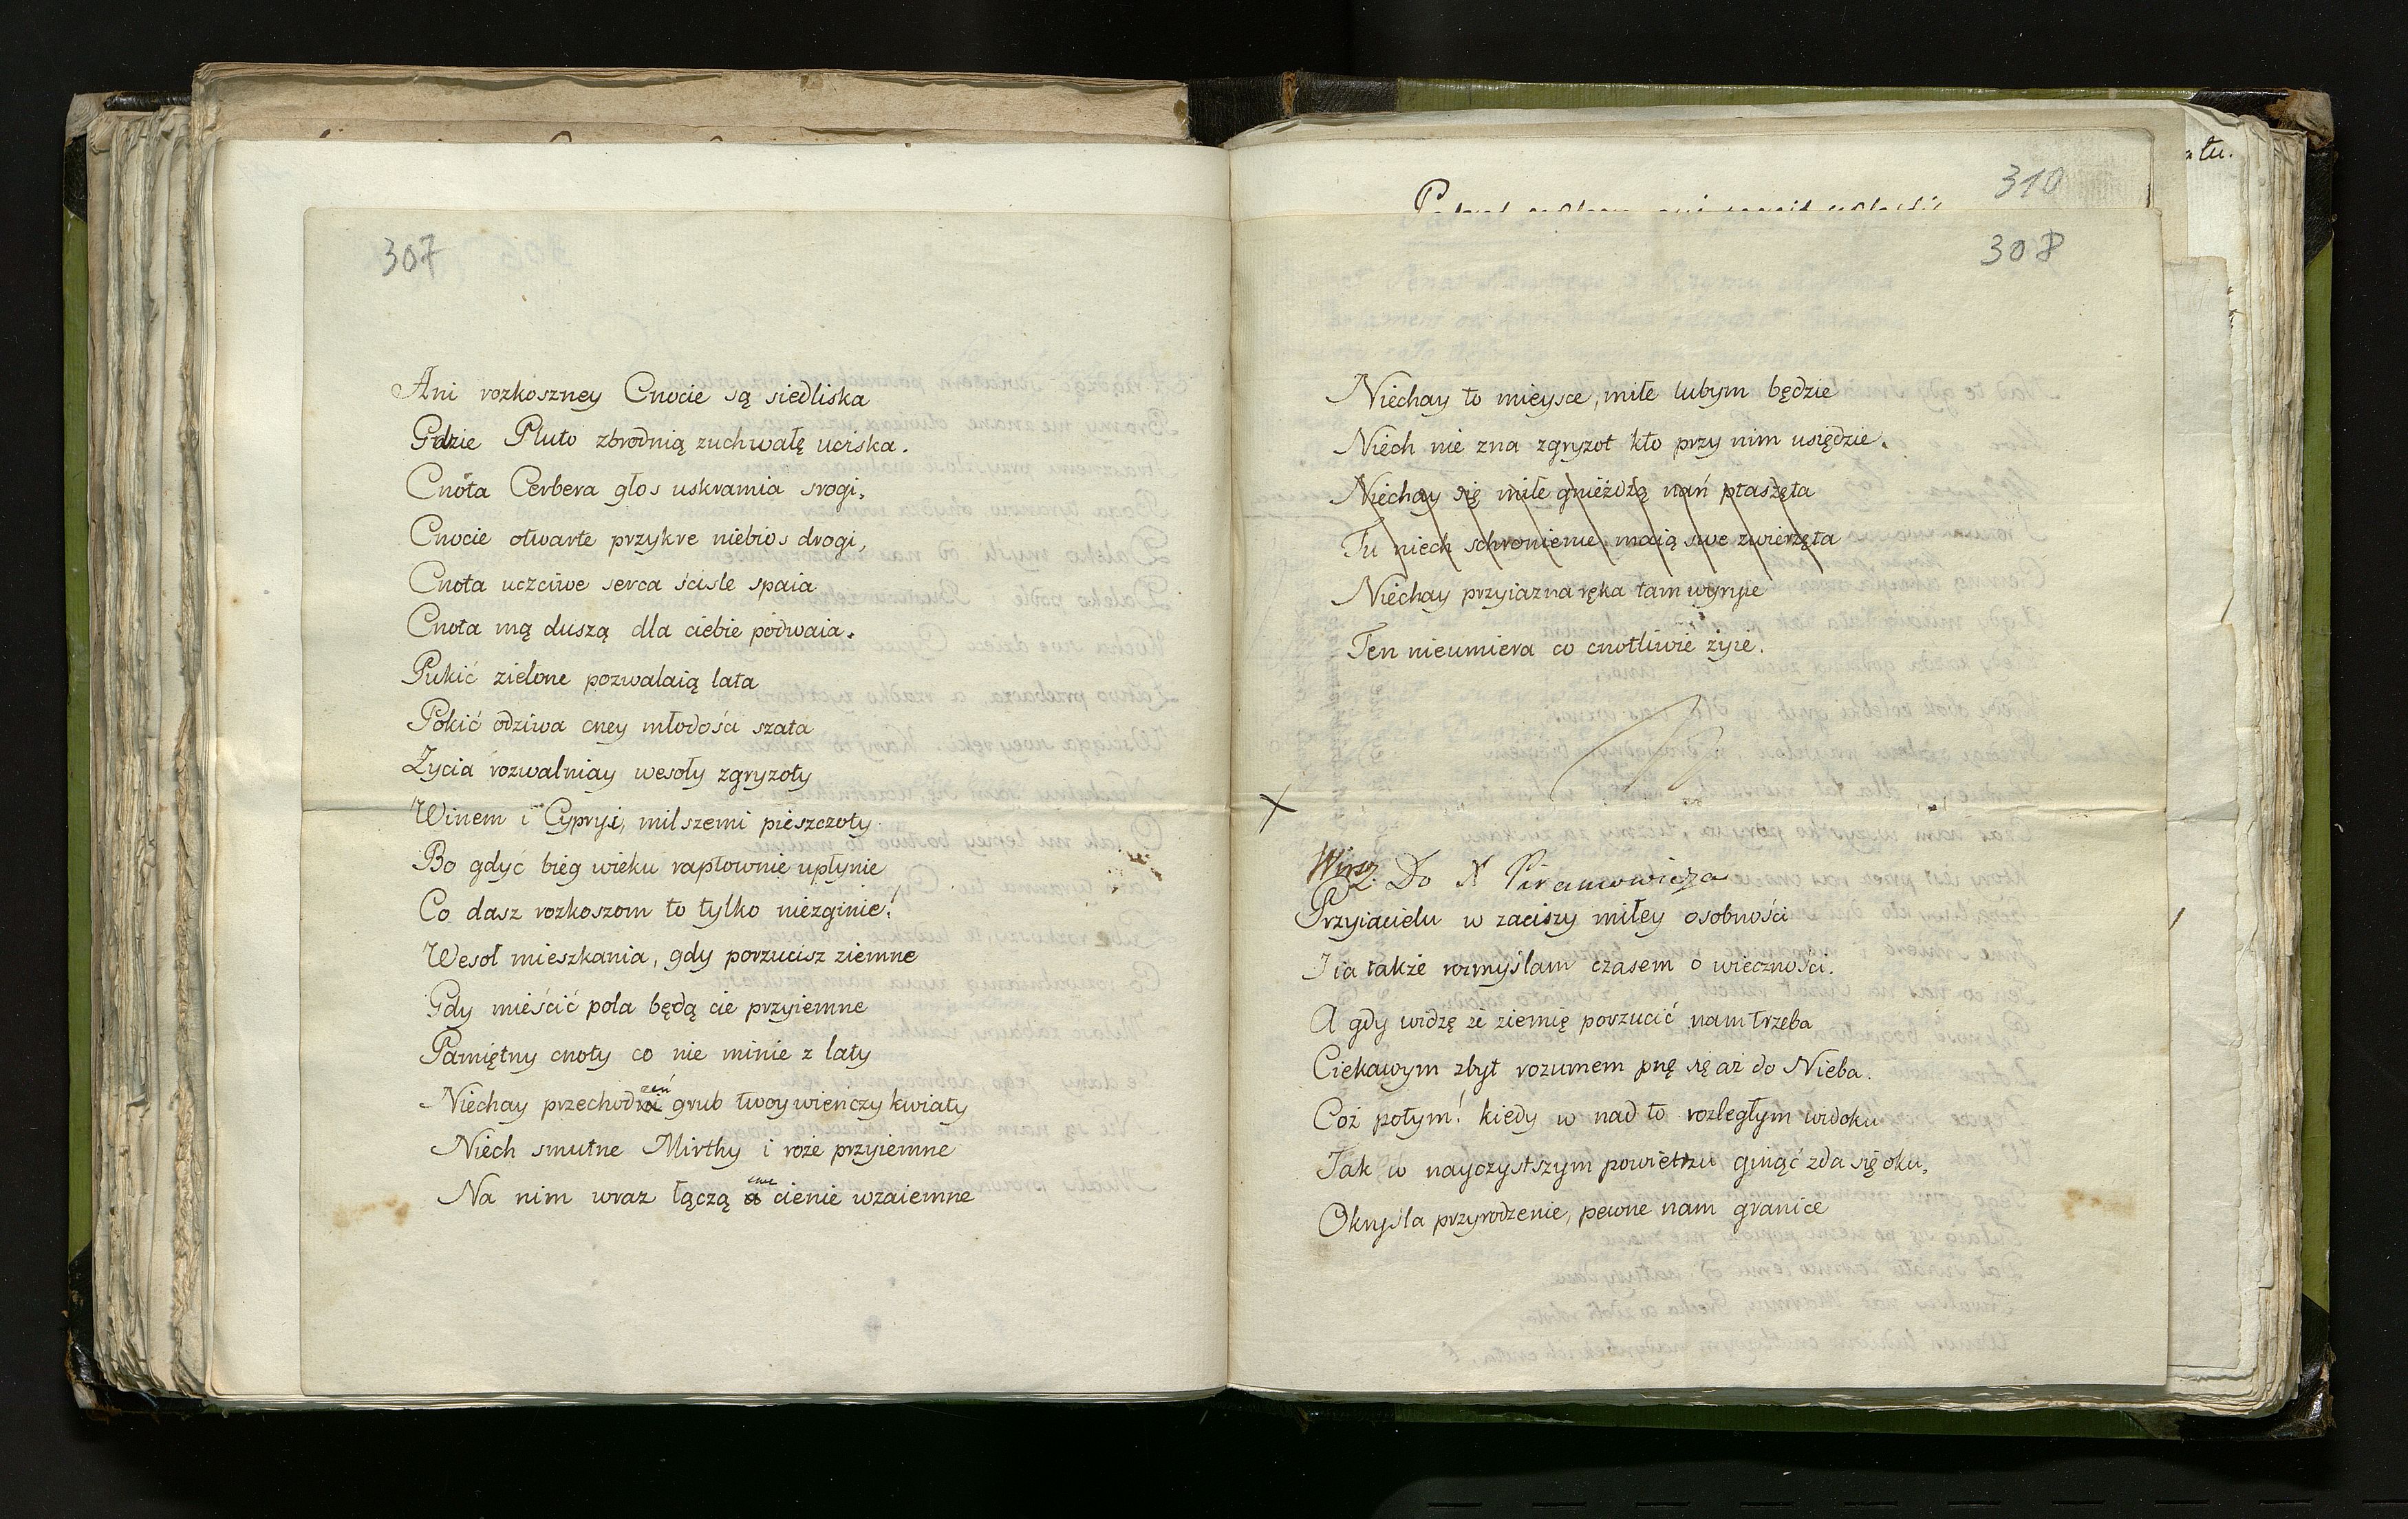 307
Ani rozkoszney Cnocie są siedliska
Gdzie Pluto zbrodnią zuchwałę uciska.
Cnota Cerbera głos uskramia srogi,
Cnocie otwarte przykre niebios drogi,
Cnota uczciwe serca ściśle spaia
Cnota mą duszą dla ciebie podwaia.
Pukić zielone pozwalaią lata
Pokić odziwa cney młodości szata
Życia rozwalniay wesoły zgryzoty
Winem i Cypryi, milszemi pieszczoty
Bo gdyć bieg wieku raptownie upłynie
Co dasz rozkoszom to tylko niezginie!
Wesoł mieszkania, gdy porzucisz ziemne
Gdy mieścić pola będą cie przyiemne
Pamiętny cnoty co nie minie z laty
zeń
Niechay przechodni grub twoy wienczy kwiaty
Niech smutne Mirthy i roże przyiemne
Na nim wraz łączą cienie wzaiemne
310
308
Niechay to mieysce, miłe lubym będzie
Niech nie zna zgryzot kto przy nim usiędzie.
Niechay się miłe gnieżdżą nań ptaszęta
Tu niech schronienie maią swe zwierzęta
Niechay przyiazna ręka tam wyryie
Ten nieumiera co cnotliwie żyie.
Wirsz. Do N Piramowicza
Przyiacielu w zaciszy miłey osobności
I ia także rozmyślam czasem o wieczności.
A gdy widzę że ziemię porzucić nam trzeba
Ciekawym zbyt rozumem pnę się aż do Nieba.
Coż potym! kiedy w nad to rozległym widoku
Jak w nayczystszym powietrzu ginąć zda się oku,
Okryśla przyrodzenie, pewne nam granice